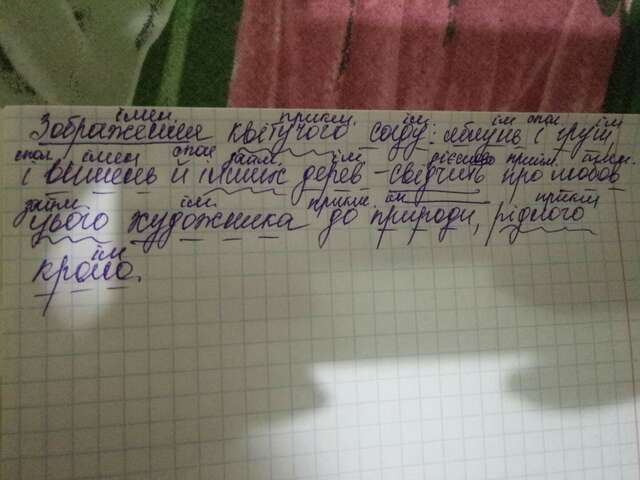 імен. прикм. ім ім спол. ім
Зображення квітучого саду: яблунь і груш,
спол. імен спол займ. ім дієслово прийм. імен.
і вишень й інших дерев - свідчить про любов
займ. ім. прийм ім прикм
цього художника до природи, рідного
ім
краю.